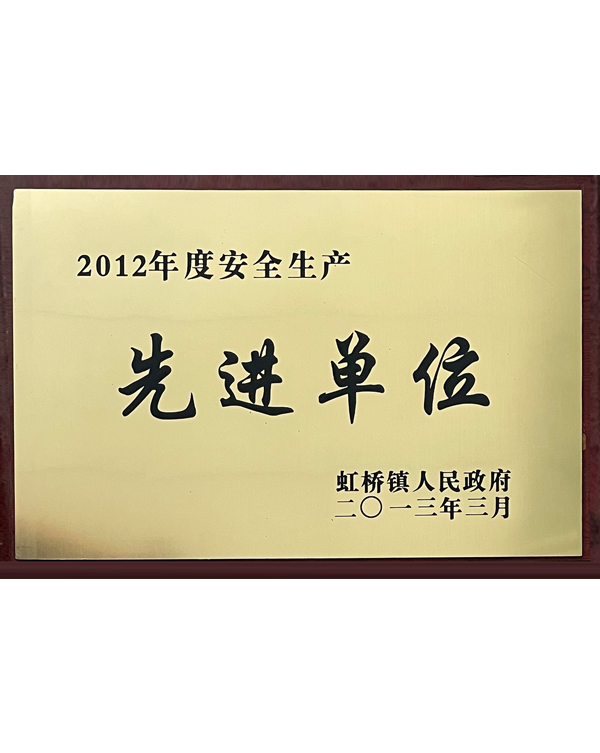 2012年度安全生产
先进单位
虹桥镇人民政府
二〇一三年三月